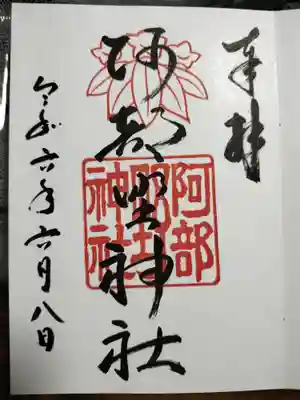 奉拝
阿部野神社
令和六年六月八日
阿部
野
神社